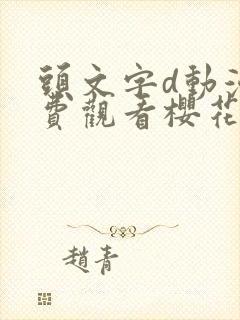 頭文字d動漫
費觀看櫻花
趙青